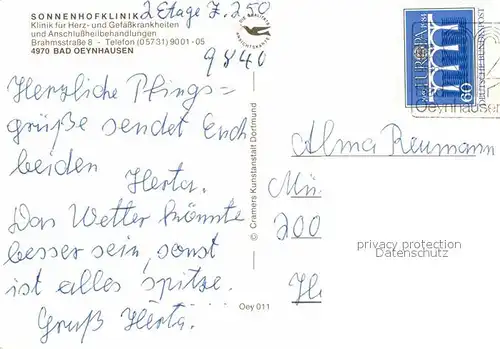 SONNENHOFKLINIK
Klinik für Herz- und Gefäßkrankheiten
und Anschlußheilbehandlungen
Brahmsstraße 8 - Telefon (05731) 9001-05
4970 BAD OEYNHAUSEN
2 Etage Z. 250
9840
Herzliche Pfings=
grüße sendet Euch
beiden
Herta.
Das Wetter könnte
besser sein, sonst
ist alles Spitze.
Gruß Herta.
© Cramers Kunstanstalt Dortmund
Oey 011
EUROPA
60
DEUTSCHE BUNDESPOST
Oeynhausen
Alma Reumann
Mü
200
H
privacy protection
Datenschutz